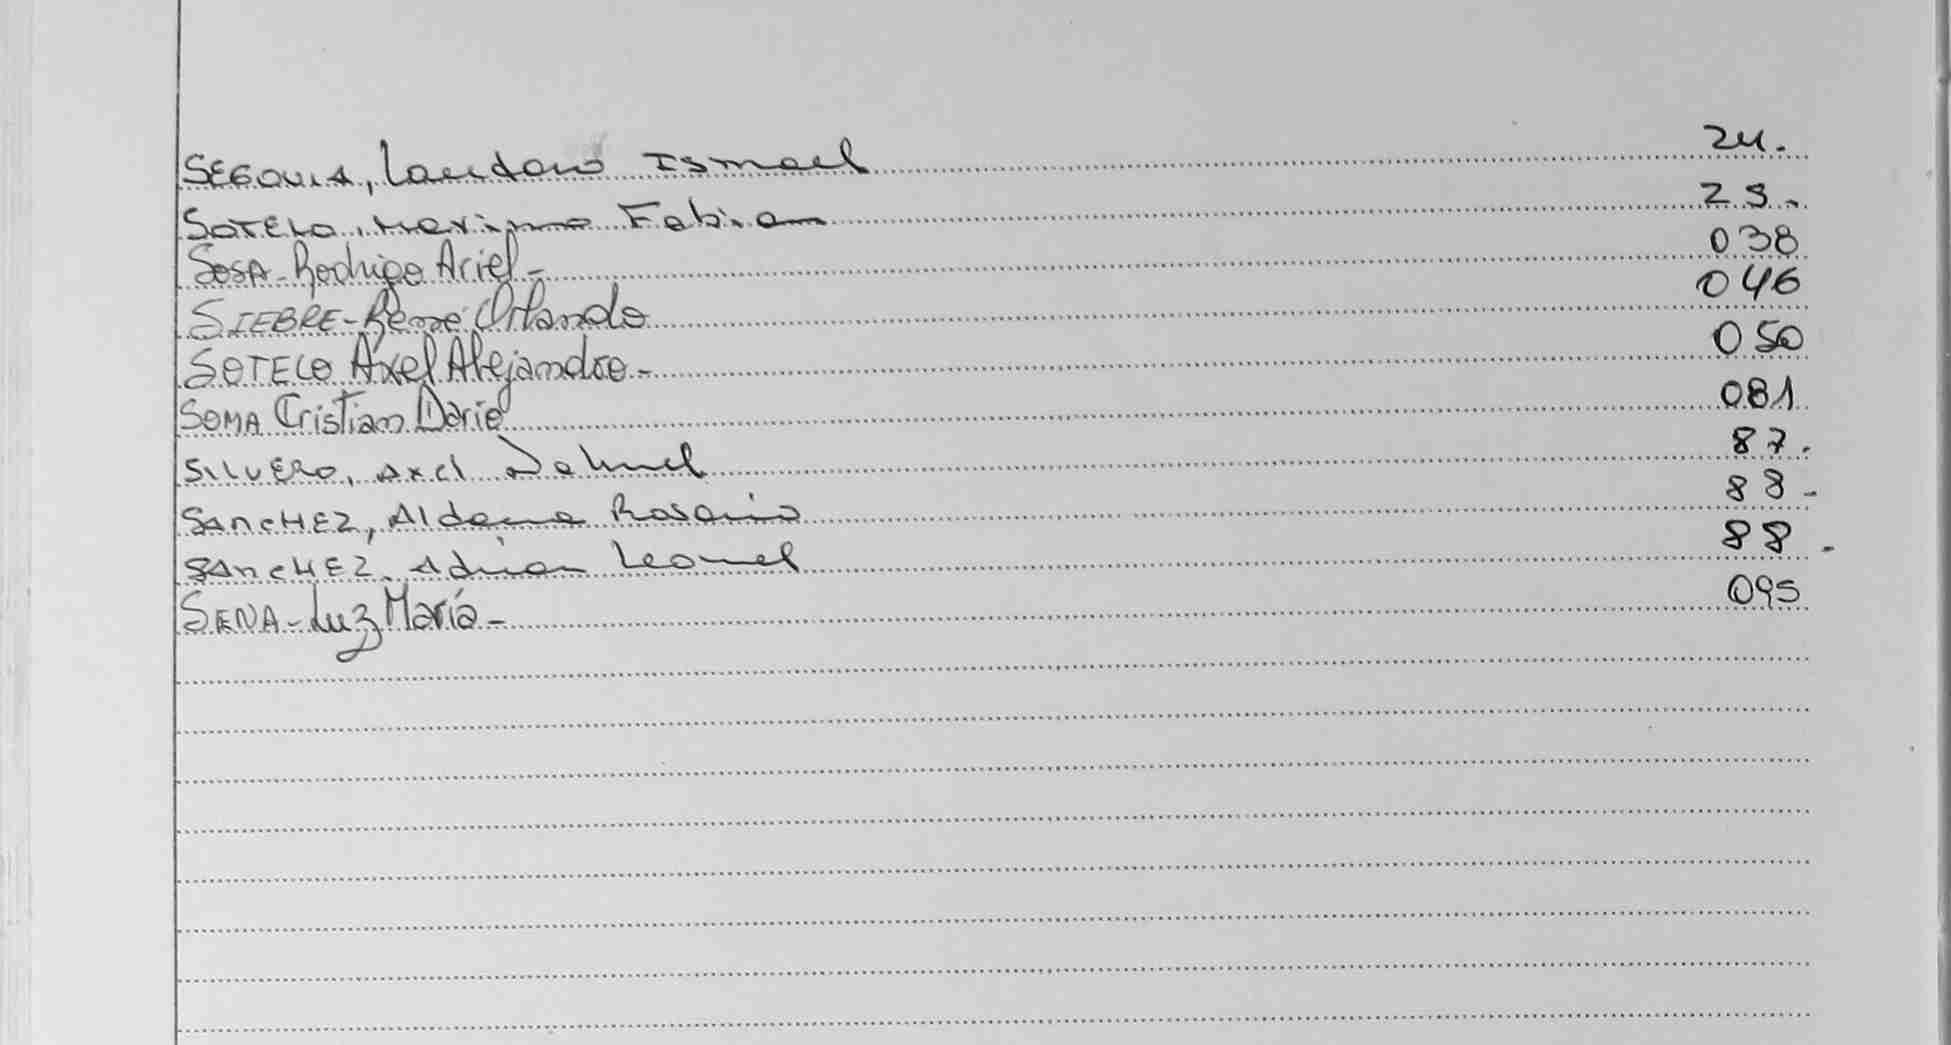 SEGOVIA, Lautaro Ismael 24.
SOTELO, Maximo Fabian 25.
SOSA - Rodrigo Ariel - 038
SIEBRE - Rene Orlando 046
SOTELO Axel Alejandro - 050
SOMA Cristian Dario 081
SILVERO, Axel 87.
SANCHEZ, Aldana Rosario 88 -
SANCHEZ, Adrian Leonel 88 -
SENA - Luz María - 095